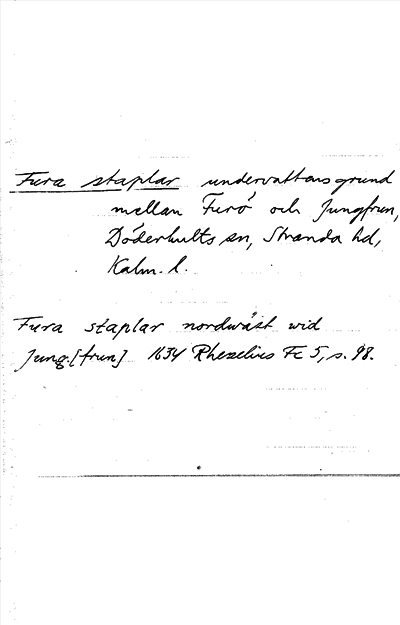 Fura staplar undervattensgrund
mellan Furö och Jungfrun,
Döderhults sn, Stranda hd,
Kalm. l.
Fura staplar nordwäst wid
Jung.[frun] 1634 Rhezelius Fc 5, s. 98.